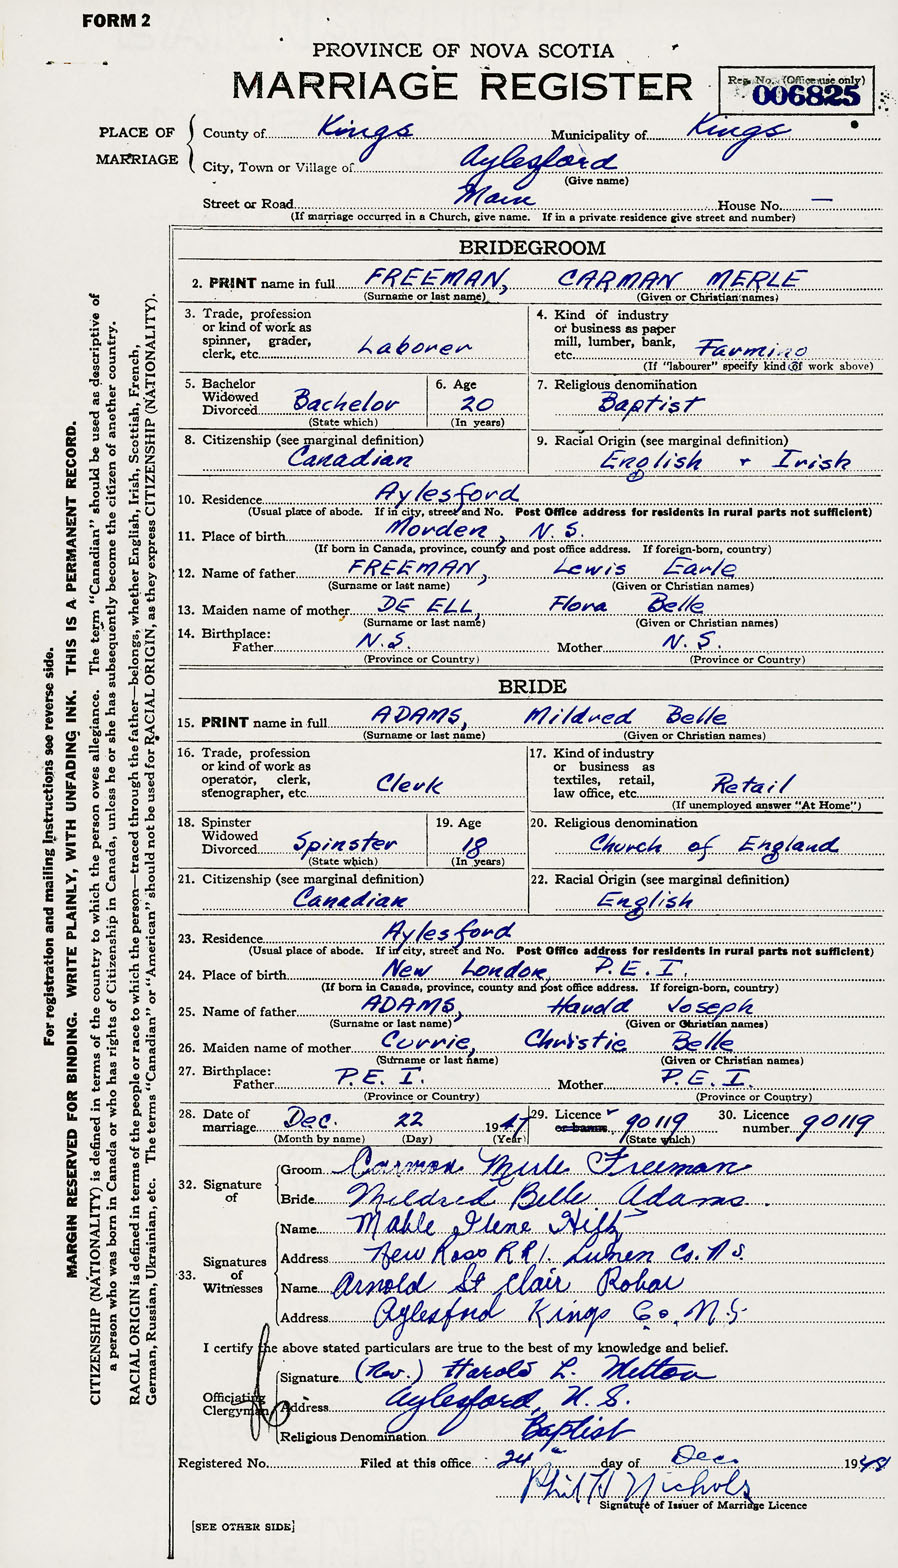 FORM 2
PROVINCE OF NOVA SCOTIA
MARRIAGE REGISTER
Reg. No. (Office use only)
006825
PLACE OF MARRIAGE
County of Kings Municipality of Kings
City, Town or Village of Aylesford
(Give name)
Street or Road Main House No. —
(If marriage occurred in a Church, give name. If in a private residence give street and number)
BRIDEGROOM
2. PRINT name in full FREEMAN, CARMAN MERLE
(Surname or last name) (Given or Christian names)
3. Trade, profession or kind of work as spinner, grader, clerk, etc. Laborer
4. Kind of industry or business as paper mill, lumber, bank, etc. Farming
(If "labourer" specify kind of work above)
5. Bachelor Widowed Divorced Bachelor
(State which)
6. Age 20
(In years)
7. Religious denomination
Baptist
8. Citizenship (see marginal definition)
Canadian
9. Racial Origin (see marginal definition)
English + Irish
10. Residence Aylesford
(Usual place of abode. If in city, street and No. Post Office address for residents in rural parts not sufficient)
11. Place of birth Morden, N.S.
(If born in Canada, province, county and post office address. If foreign-born, country)
12. Name of father FREEMAN, Lewis Earle
(Surname or last name) (Given or Christian names)
13. Maiden name of mother DE ELL, Flora Belle
(Surname or last name) (Given or Christian names)
14. Birthplace:
Father N.S. Mother N.S.
(Province or Country) (Province or Country)
BRIDE
15. PRINT name in full ADAMS, Mildred Belle
(Surname or last name) (Given or Christian names)
16. Trade, profession or kind of work as operator, clerk, stenographer, etc. Clerk
17. Kind of industry or business as textiles, retail, law office, etc. Retail
(If unemployed answer "At Home")
18. Spinster Widowed Divorced Spinster
(State which)
19. Age 18
(In years)
20. Religious denomination
Church of England
21. Citizenship (see marginal definition)
Canadian
22. Racial Origin (see marginal definition)
English
23. Residence Aylesford
(Usual place of abode. If in city, street and No. Post Office address for residents in rural parts not sufficient)
24. Place of birth New London, P.E.I.
(If born in Canada, province, county and post office address. If foreign-born, country)
25. Name of father ADAMS, Harold Joseph
(Surname or last name) (Given or Christian names)
26. Maiden name of mother Currie, Christie Belle
(Surname or last name) (Given or Christian names)
27. Birthplace:
Father P.E.I. Mother P.E.I.
(Province or Country) (Province or Country)
28. Date of marriage Dec. 22 1947
(Month by name) (Day) (Year)
29. Licence or banns 90119
(State which)
30. Licence number 90119
32. Signature of
Groom Carman Merle Freeman
Bride Mildred Belle Adams
33. Signatures of Witnesses
Name Mable Ilene Hiltz
Address New Ross R R 1. Lunen Co. N.S.
Name Arnold St Clair Robar
Address Aylesford Kings Co. N.S
I certify the above stated particulars are true to the best of my knowledge and belief.
Officiating Clergyman
Signature (Rev.) Harold L. Mitton
Address Aylesford, N.S.
Religious Denomination Baptist
Registered No. Filed at this office 24 day of Dec. 1948
Phil H Nichols
Signature of Issuer of Marriage Licence
[SEE OTHER SIDE]
For registration and mailing instructions see reverse side.
MARGIN RESERVED FOR BINDING. WRITE PLAINLY, WITH UNFADING INK. THIS IS A PERMANENT RECORD.
CITIZENSHIP (NATIONALITY) is defined in terms of the country to which the person owes allegiance. The term "Canadian" should be used as descriptive of
a person who was born in Canada or who has rights of Citizenship in Canada, unless he or she has subsequently become the citizen of another country.
RACIAL ORIGIN is defined in terms of the people or race to which the person—traced through the father—belongs, whether English, Irish, Scottish, French,
German, Russian, Ukrainian, etc. The terms "Canadian" or "American" should not be used for RACIAL ORIGIN, as they express CITIZENSHIP (NATIONALITY).